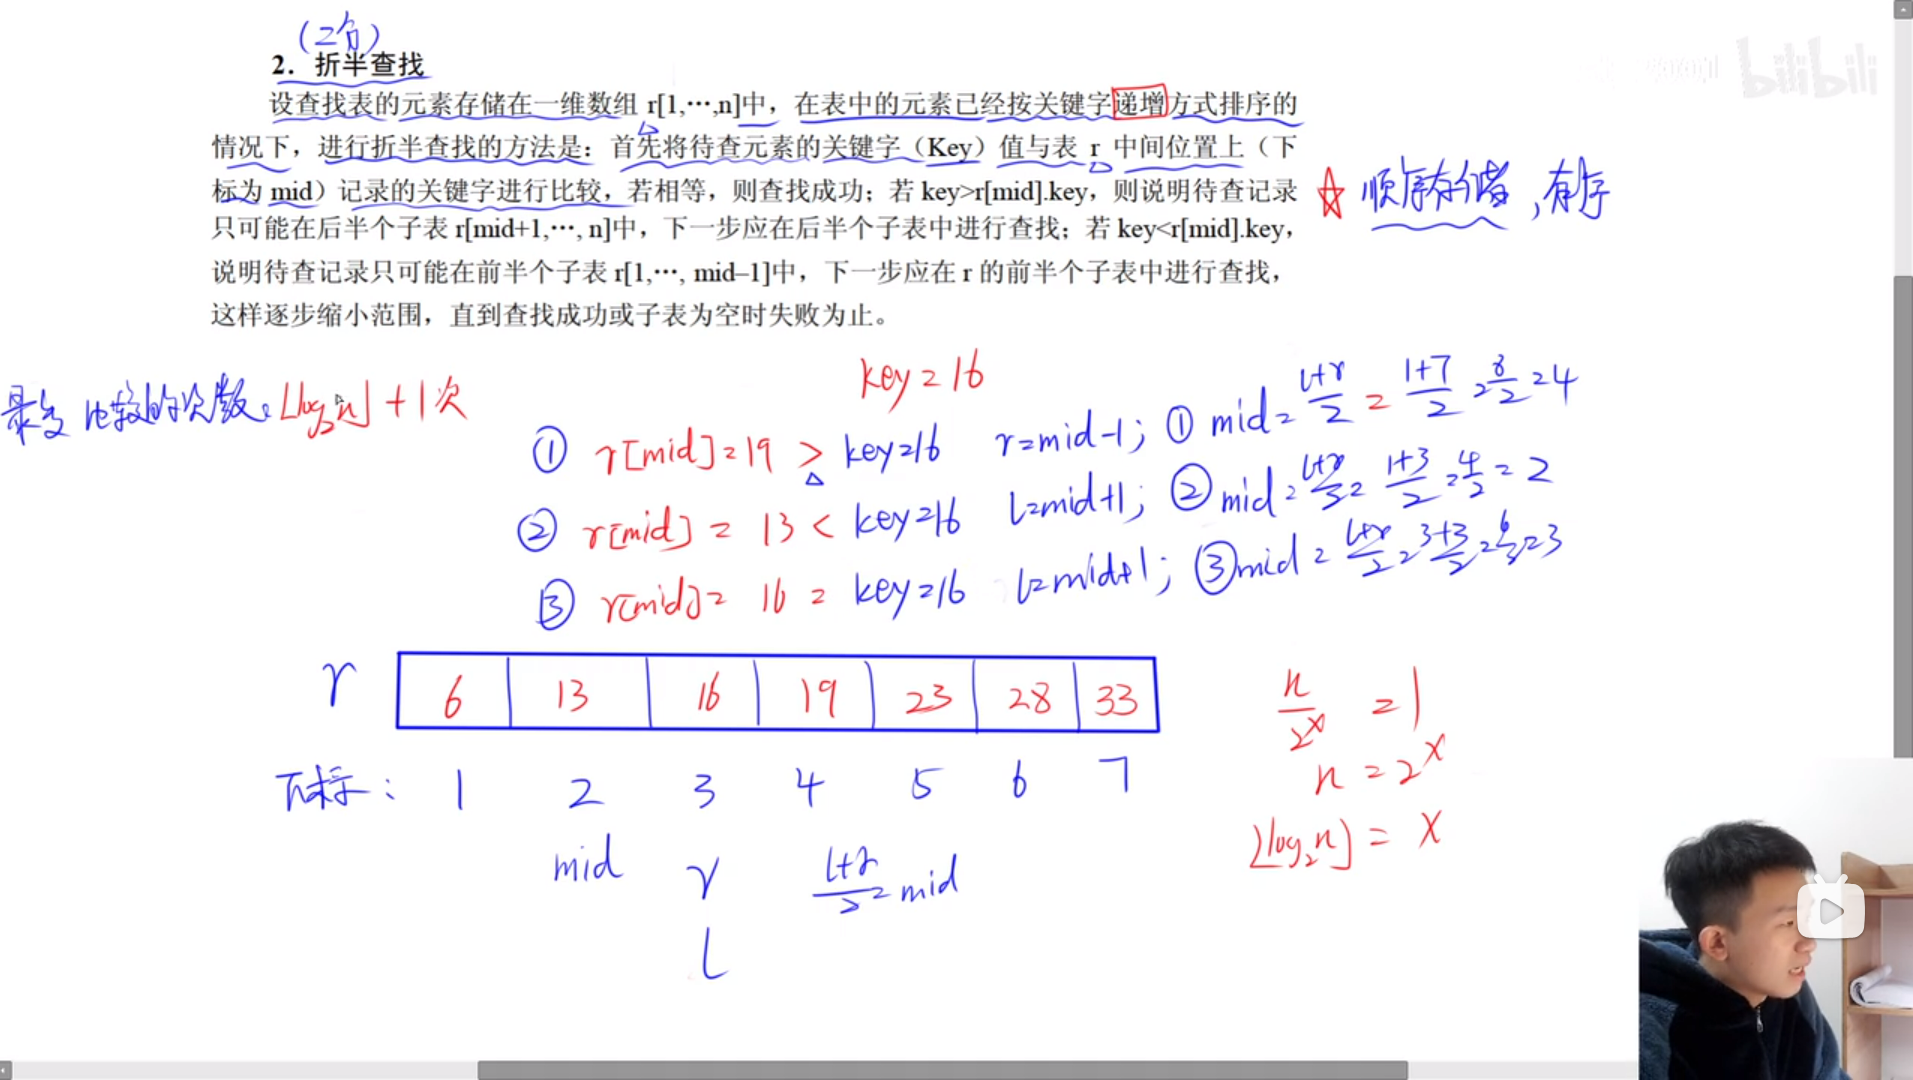 (2分)
2. 折半查找
bilibili
设查找表的元素存储在一维数组 r[1,…,n]中，在表中的元素已经按关键字递增方式排序的
情况下，进行折半查找的方法是：首先将待查元素的关键字（Key）值与表 r 中间位置上（下
标为 mid）记录的关键字进行比较，若相等，则查找成功；若 key>r[mid].key，则说明待查记录
只可能在后半个子表 r[mid+1,…, n]中，下一步应在后半个子表中进行查找；若 key<r[mid].key，
说明待查记录只可能在前半个子表 r[1,…, mid–1]中，下一步应在 r 的前半个子表中进行查找，
这样逐步缩小范围，直到查找成功或子表为空时失败为止。
☆ 顺序存储，有序
最多比较的次数：⌊log₂n⌋+1次
key=16
① r[mid]=19 > key=16 r=mid-1; ① mid=(l+r)/2=(1+7)/2=8/2=4
② r[mid]=13 < key=16 l=mid+1; ② mid=(l+r)/2=(1+3)/2=4/2=2
③ r[mid]=16=key=16 l=mid+1; ③ mid=(l+r)/2=(3+3)/2=6/2=3
r 6 13 16 19 23 28 33
下标: 1 2 3 4 5 6 7
mid r (l+r)/2=mid
l
n/2^x=1
n=2^x
⌊log₂n⌋=x